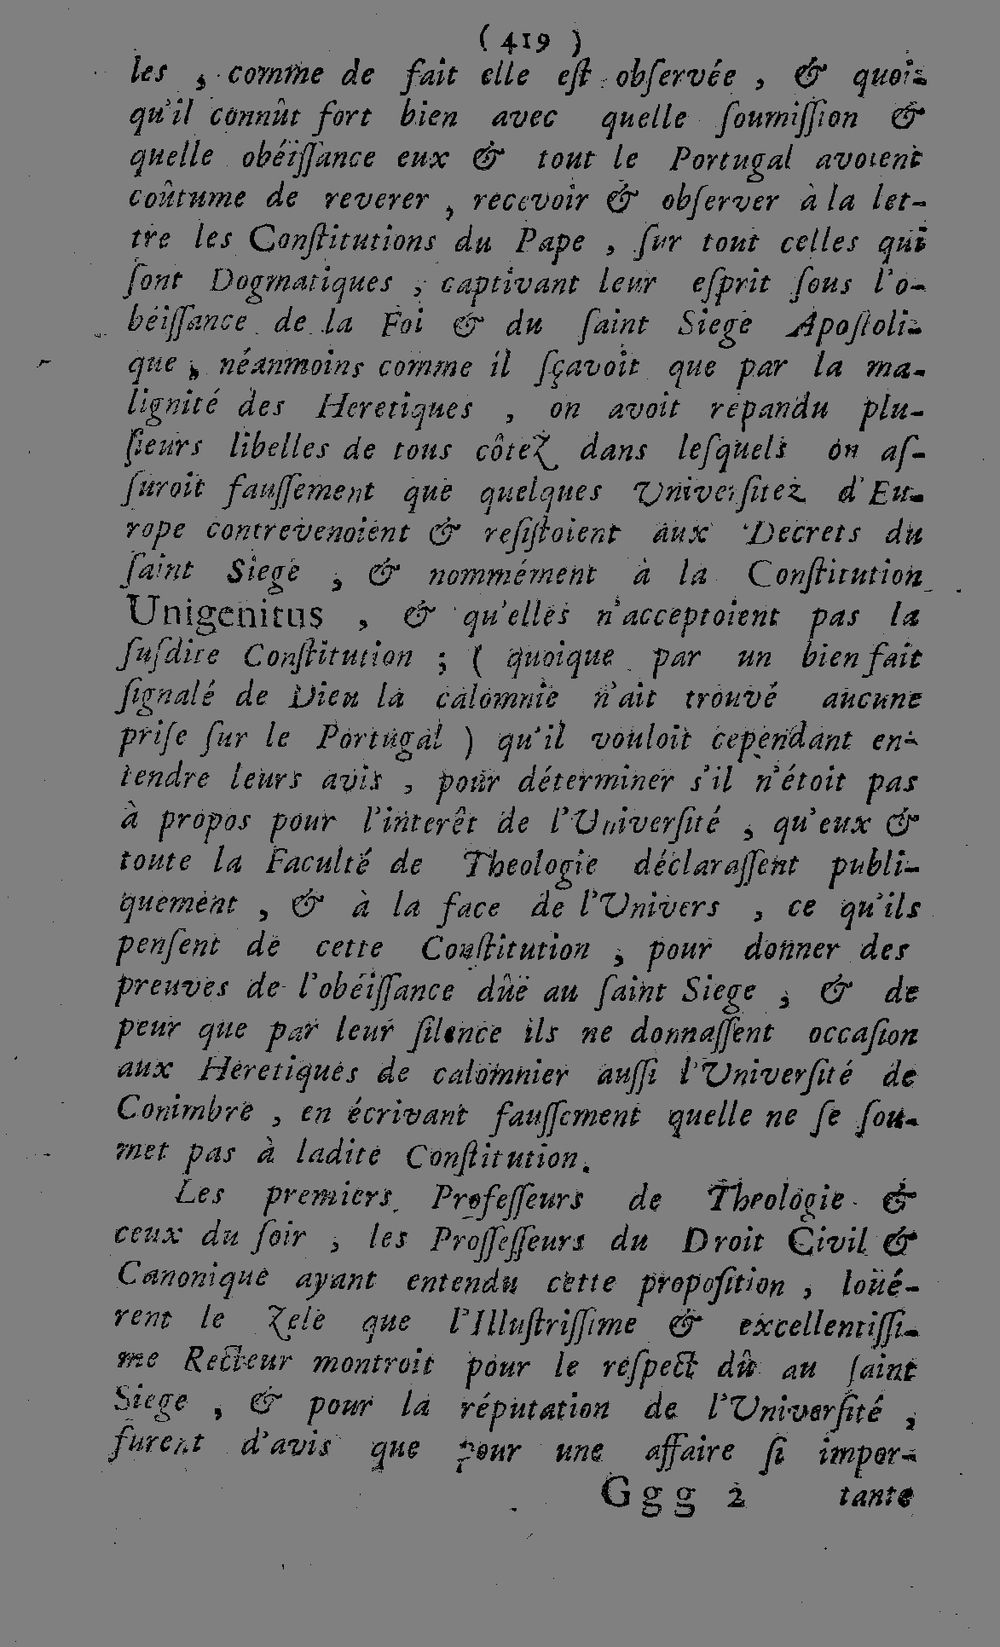 ( 419 )
les , comme de fait elle eſt obſervée , & quoi-
qu'il connût fort bien avec quelle ſoumiſſion &
quelle obéïſſance eux & tout le Portugal avoient
coûtume de reverer , recevoir & obſerver à la let-
tre les Conſtitutions du Pape , ſur tout celles qui
ſont Dogmatiques , captivant leur eſprit ſous l'o-
béiſſance de la Foi & du ſaint Siege Apoſtoli-
que , néanmoins comme il ſçavoit que par la ma-
lignité des Heretiques , on avoit repandu plu-
ſieurs libelles de tous côtez dans leſquels on aſ-
ſuroit fauſſement que quelques Univerſitez d'Eu-
rope contrevenoient & reſiſtoient aux Decrets du
ſaint Siege , & nommément à la Conſtitution
Unigenitus , & qu'elles n'acceptoient pas la
ſuſdite Conſtitution ; ( quoique par un bienfait
ſignalé de Dieu la calomnie n'ait trouvé aucune
priſe ſur le Portugal ) qu'il vouloit cependant en-
tendre leurs avis , pour déterminer s'il n'étoit pas
à propos pour l'interêt de l'Univerſité , qu'eux &
toute la Faculté de Theologie déclaraſſent publi-
quement , & à la face de l'Univers , ce qu'ils
penſent de cette Conſtitution , pour donner des
preuves de l'obéiſſance dûë au ſaint Siege , & de
peur que par leur ſilence ils ne donnaſſent occaſion
aux Heretiques de calomnier auſſi l'Univerſité de
Conimbre , en écrivant fauſſement quelle ne ſe ſou-
met pas à ladite Conſtitution.
Les premiers Profeſſeurs de Theologie &
ceux du ſoir , les Proſſeſſeurs du Droit Civil &
Canonique ayant entendu cette propoſition , loüé-
rent le Zele que l'Illuſtriſſime & excellentiſſi-
me Recteur montroit pour le reſpect dû au ſaint
Siege , & pour la réputation de l'Univerſité ,
furent d'avis que pour une affaire ſi impor-
Ggg 2 tante